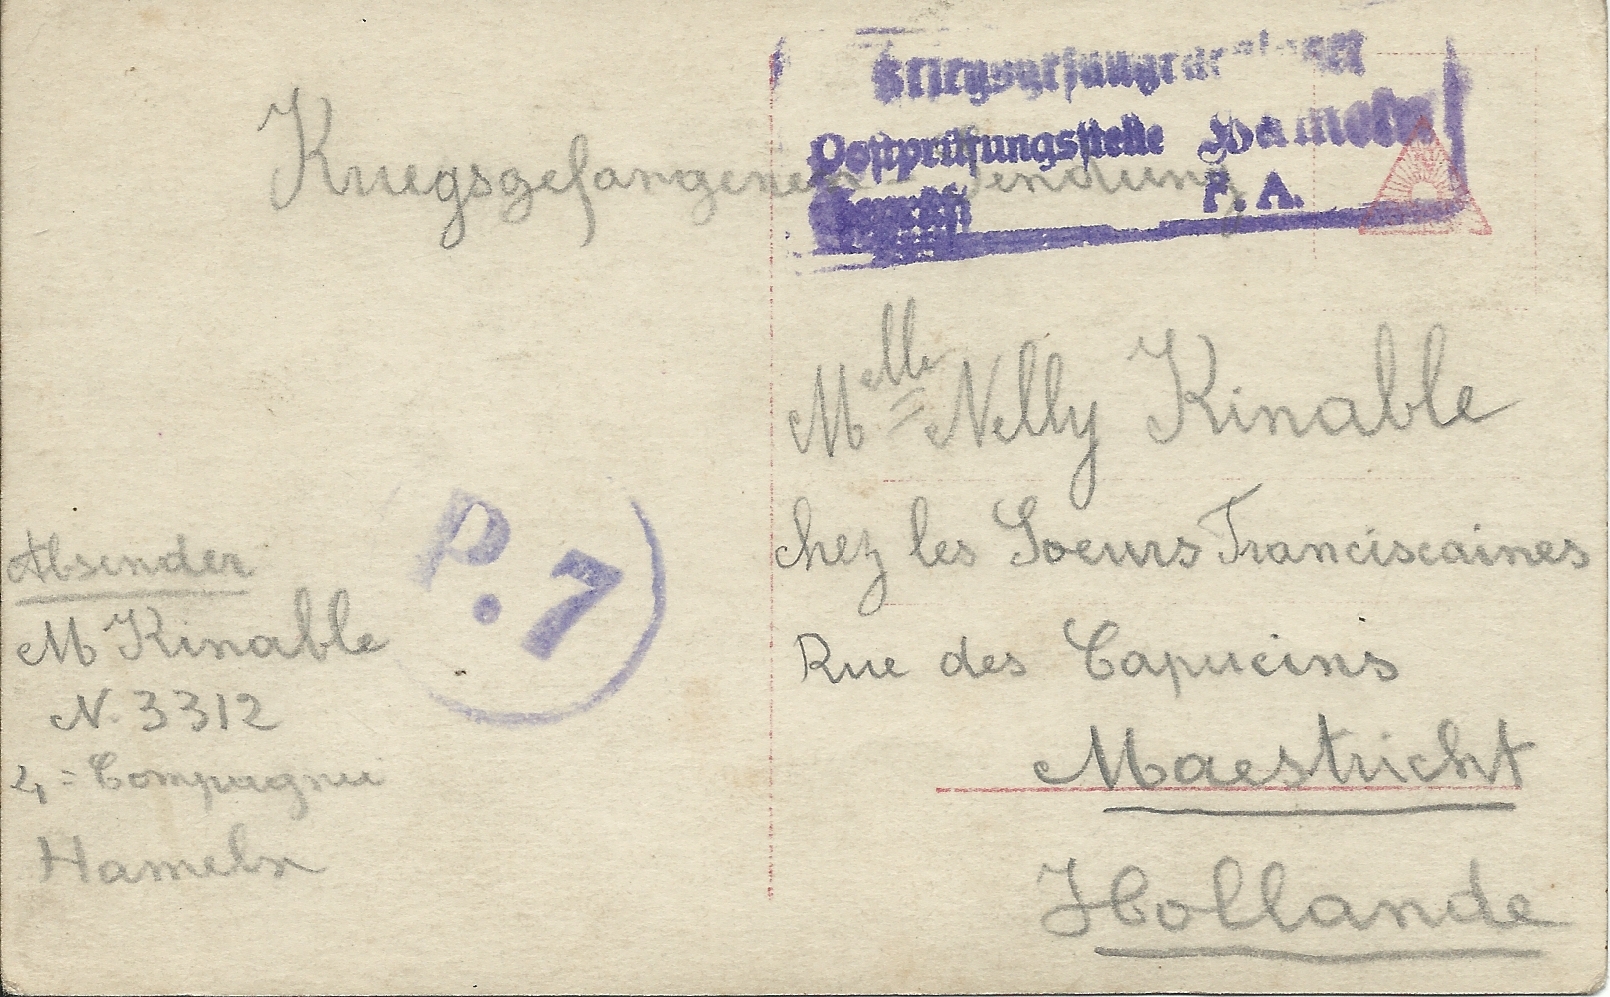 Kriegsgefangenenlager
Postprüfungsstelle Hameln
Geprüft F. A.
Kriegsgefangenen-Sendung
Melle Nelly Kinable
chez les Soeurs Franciscaines
Rue des Capucins
Maestricht
Hollande
P. 7
Absender
M Kinable
N. 3312
4 = Compagnie
Hameln